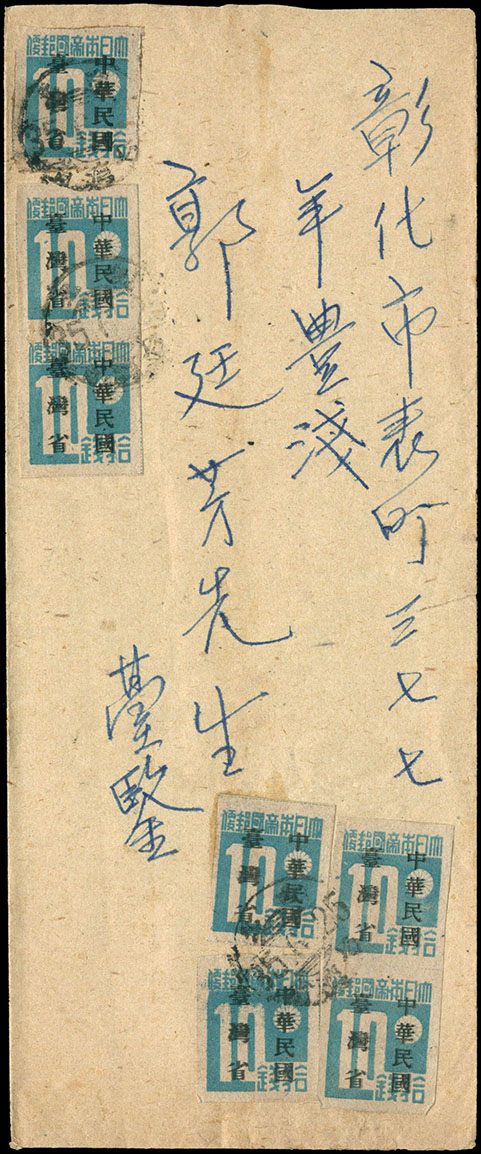 彰化市表町三七七
豊
郭廷芳先生
臺鑒
大日本帝國郵便
10
拾錢
中華民國
臺灣省
大日本帝國郵便
10
拾錢
中華民國
臺灣省
10
拾錢
中華民國
臺灣省
大日本帝國郵便
10
中華民國
臺灣省
大日本帝國郵便
10
拾錢
中華民國
臺灣省
大日本帝國郵便
10
拾錢
中華民國
臺灣省
大日本帝國郵便
10
拾錢
中華民國
臺灣省